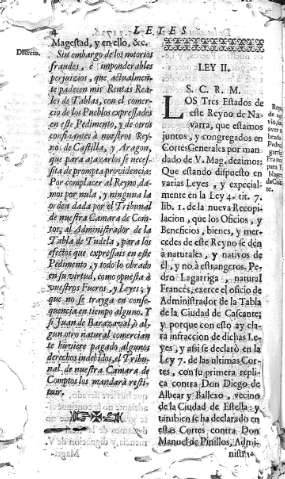 4
LEYES
Decreto.
Magestad, y en ello, &c.
Sin embargo de los notorios
fraudes, è imponderables
perjuicios, que actualmen-
te padecen mis Rentas Rea-
les de Tablas, con el comer-
cio de los Pueblos expressados
en este Pedimento, y de otros
confinantes à nuestros Rey-
nos de Castilla, y Aragon,
que para atajarlos se necess-
sita de prompta providencia:
Por complacer al Reyno da-
mos por nula, y ninguna la
orden dada por el Tribunal
de nuestra Camara de Comp-
tos, al Administrador de la
Tabla de Tudela, para los
efectos que expressais en este
Pedimento, y todo lo obrado
en su virtud, como opuesta à
vuestros Fueros, y Leyes; y
que no se trayga en conse-
quencia en tiempo alguno. Y
si Juan de Barazaval, ò al-
gun otro natural comercian-
te huviere pagado algunos
derechos indebidos, el Tribu-
nal de nuestra Camara de
Comptos los mandará resti-
tuir.
LEY II.
S. C. R. M.
LOS Tres Estados de
este Reyno de Na-
varra, que estamos
juntos, y congregados en
Cortes Generales por man-
dado de V. Mag. dezimos:
Que estando dispuesto en
varias Leyes, y especial-
mente en la Ley 4. tit. 7.
lib. 1. de la nueva Recopi-
lacion, que los Oficios, y
Beneficios, bienes, y mer-
cedes de este Reyno se den
à naturales, y nativos de
èl, y no à estrangeros. Pe-
dro Lagarriga, natural
Francès, exerce el oficio de
Administrador de la Tabla
de la Ciudad de Cascante;
y porque con esto ay cla-
ra infraccion de dichas Le-
yes, y assi se declarò en la
Ley 7. de las ultimas Cor-
tes, con su primera replica
contra Don Diego de
Albear y Ballexo, vecino
de la Ciudad de Estella: y
tambien se ha declarado en
estas Cortes contra Don
Manuel de Pinillos, Admi-
nistra-